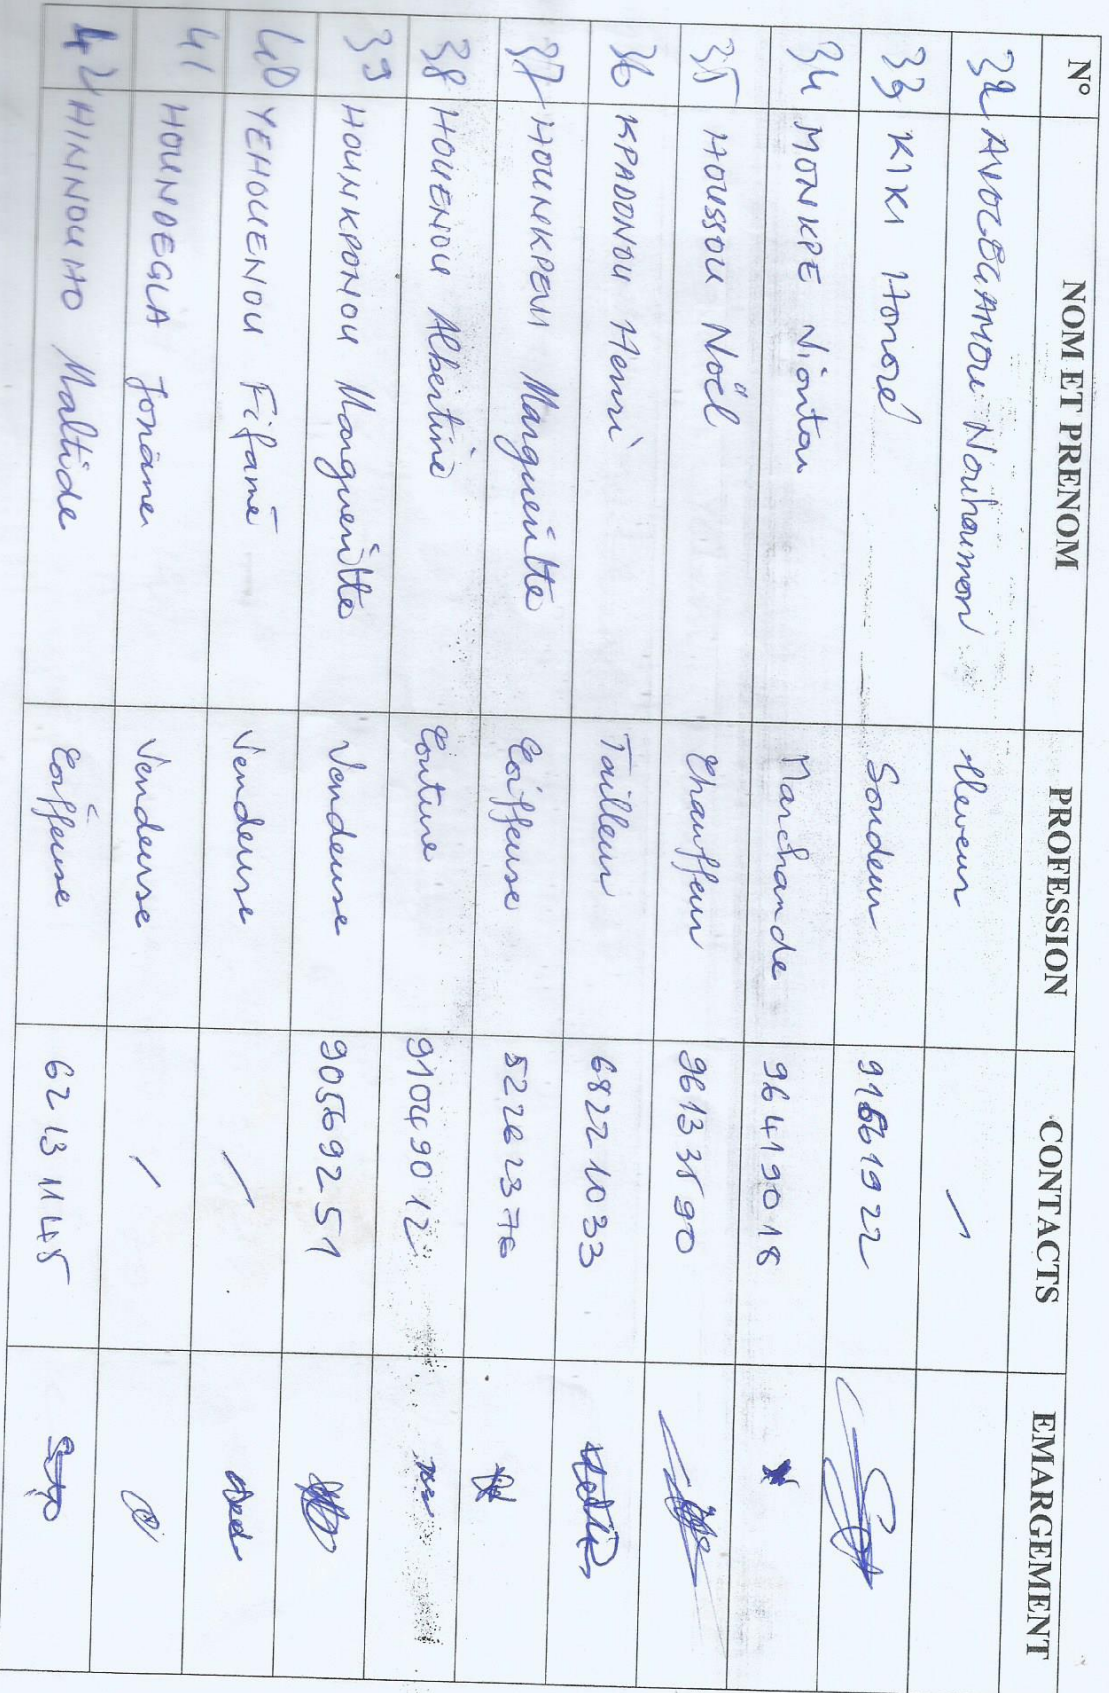 N° NOM ET PRENOM PROFESSION CONTACTS EMARGEMENT
32 AVOCEGAMOU Nouhoumon Eleveur /
33 KIKI Honoré Soudeur 91661922
34 MONKPE Viontou Marchande 96419018
35 HOUSSOU Noël Chauffeur 96133590
36 KPADONOU Henri Tailleur 68221033
37 HOUNKPEVI Margueritte Coiffeuse 52262376
38 HOUENOU Albertine Couture 91049012
39 HOUNKPONOU Margueritte Vendeuse 90569251
40 YEHOUENOU Fifamè Vendeuse /
41 HOUNDEGLA Jonâme Vendeuse /
42 HINNOUHO Maltide Coiffeuse 62131145